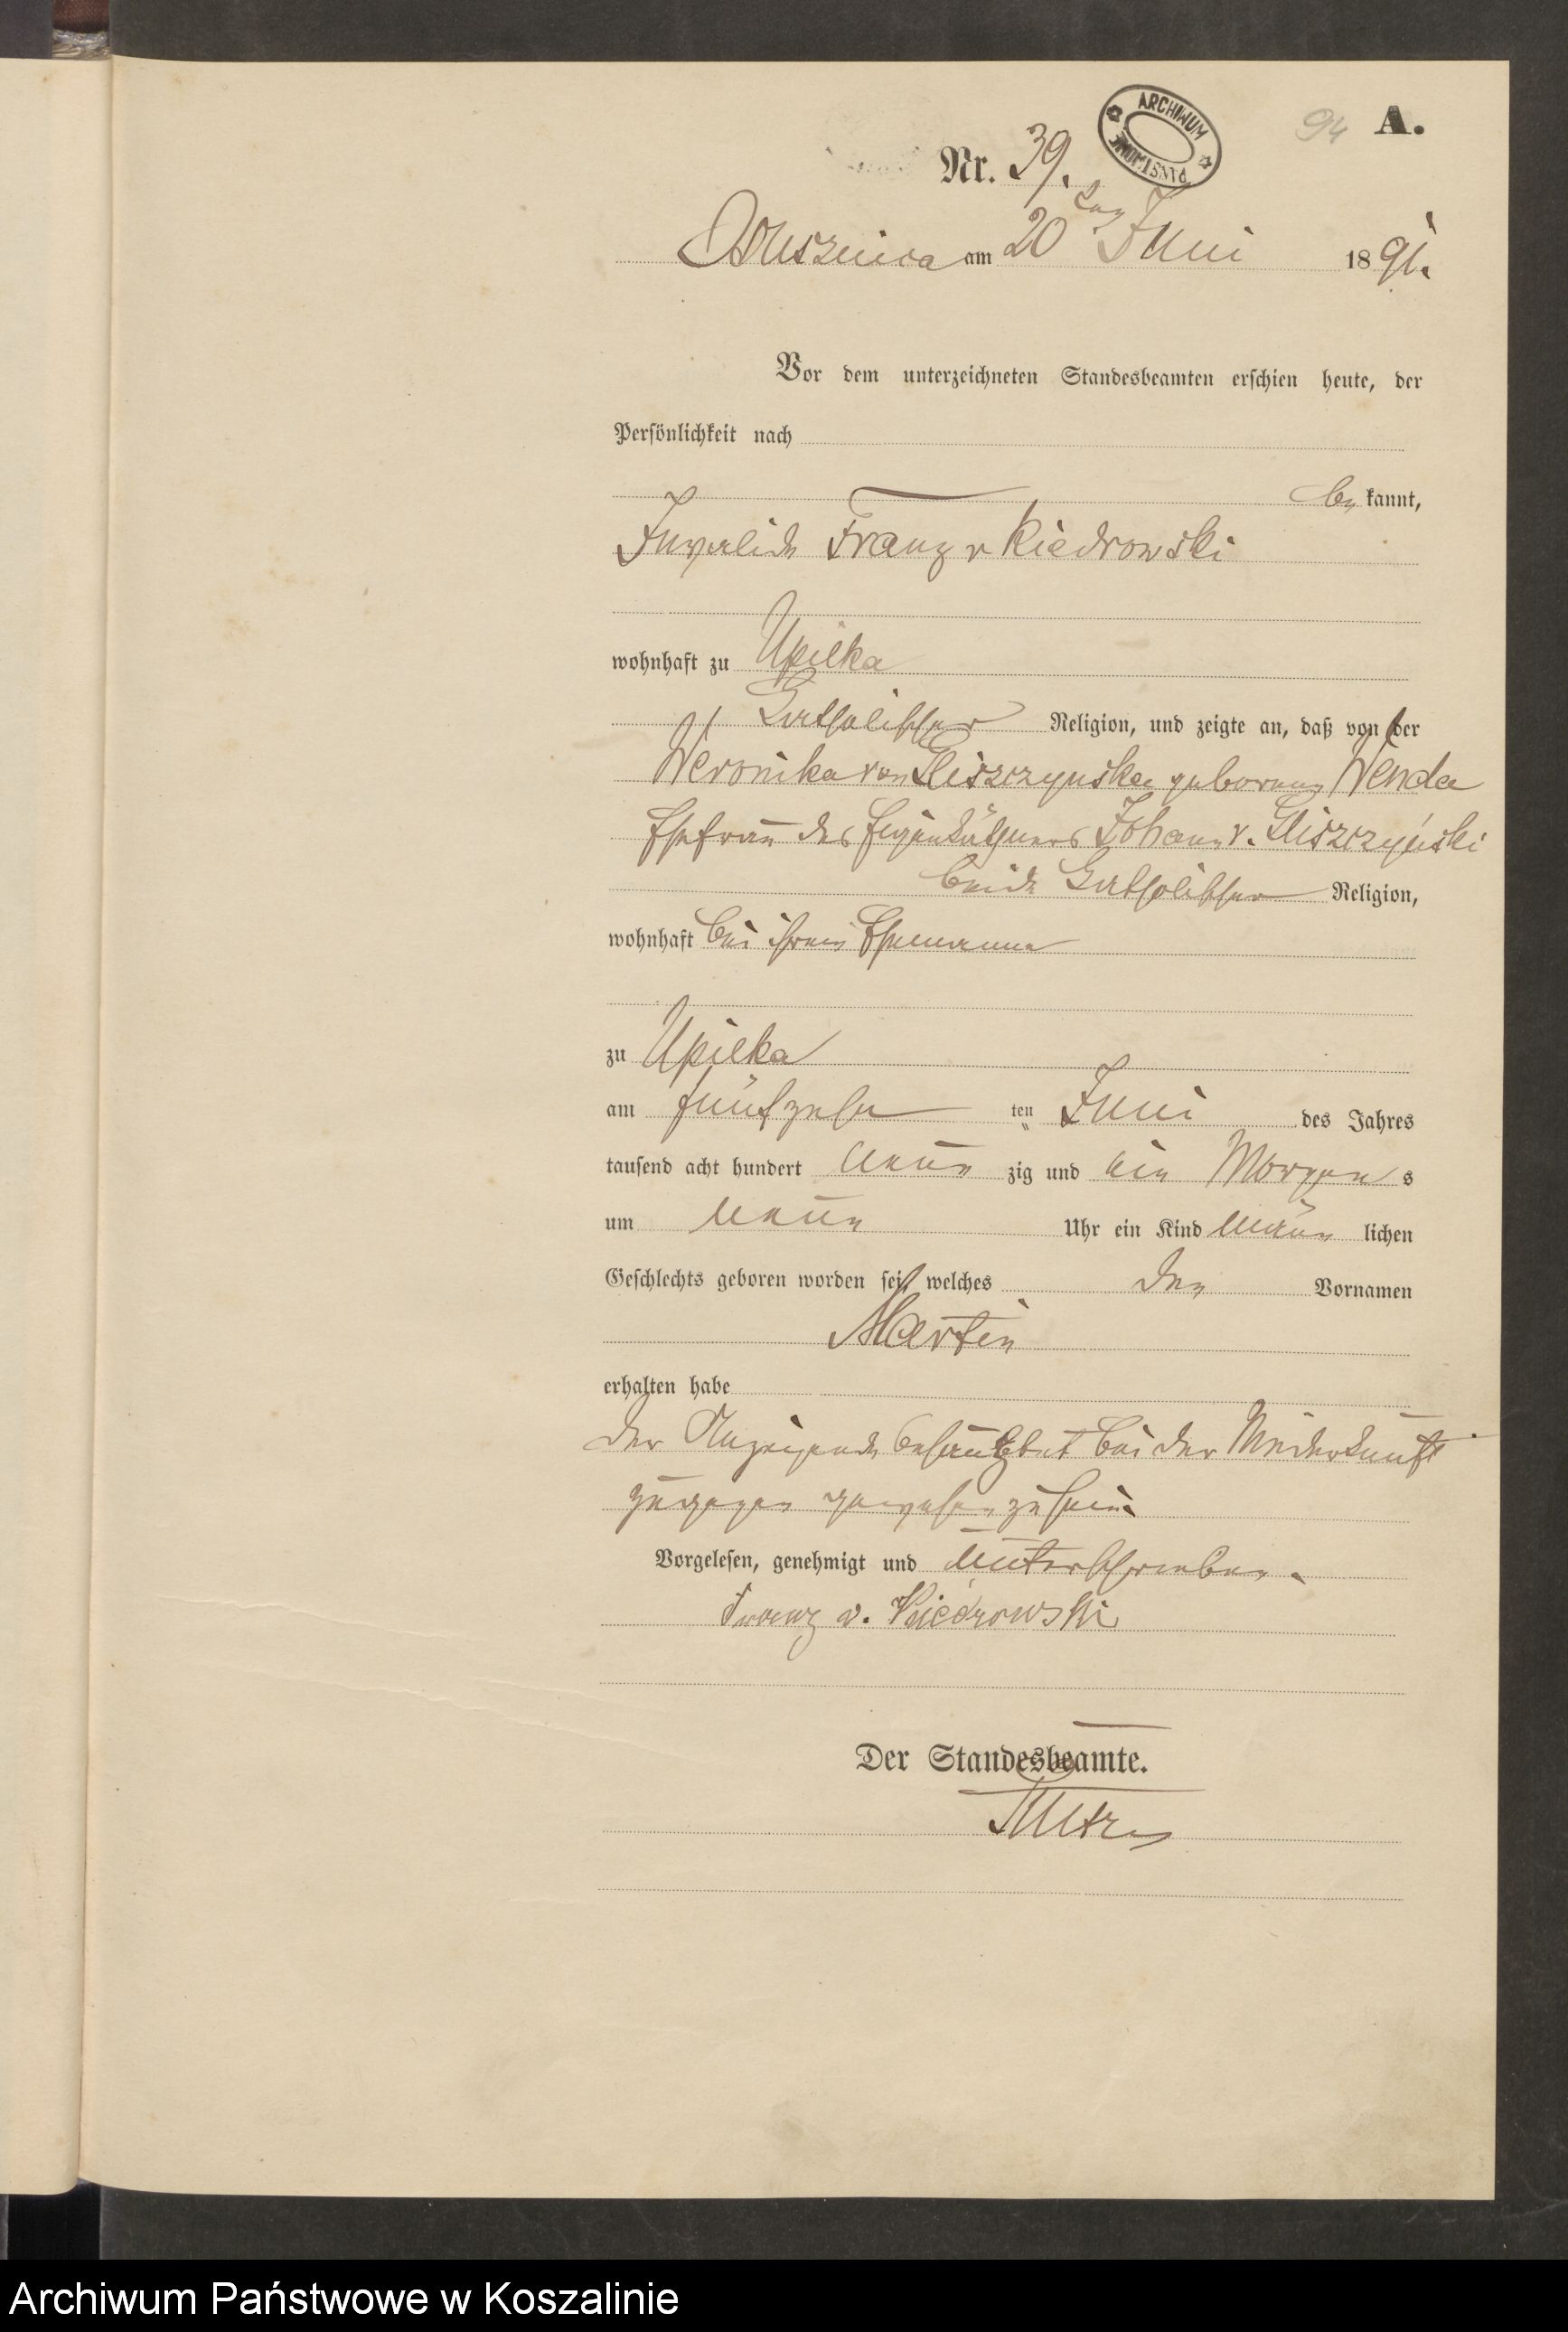 94 A.
ARCHIWUM PAŃSTWOWE
Nr. 39.
Borszcica am 20 ten Juni 1891.
Vor dem unterzeichneten Standesbeamten erschien heute, der
Persönlichkeit nach
be kannt,
Invalide Franz v Kiedrowski
wohnhaft zu Upilka
katholischer Religion, und zeigte an, daß von der
Weronika von Gliszczynska geborene Wenda
Ehefrau des Eigenkäthners Johann v. Gliszczyński
beide katholischer Religion,
wohnhaft bei ihrem Ehemanne
zu Upilka
am fünfzehn ten Juni des Jahres
tausend acht hundert neun zig und ein Morgen s
um neun Uhr ein Kind männ lichen
Geschlechts geboren worden sei, welches den Vornamen
Martin
erhalten habe
Der Anzeigende behauptet bei der Niederkunft
zugegen gewesen zu sein.
Vorgelesen, genehmigt und unterschrieben.
Franz v. Kiedrowski
Der Standesbeamte.
Archiwum Państwowe w Koszalinie